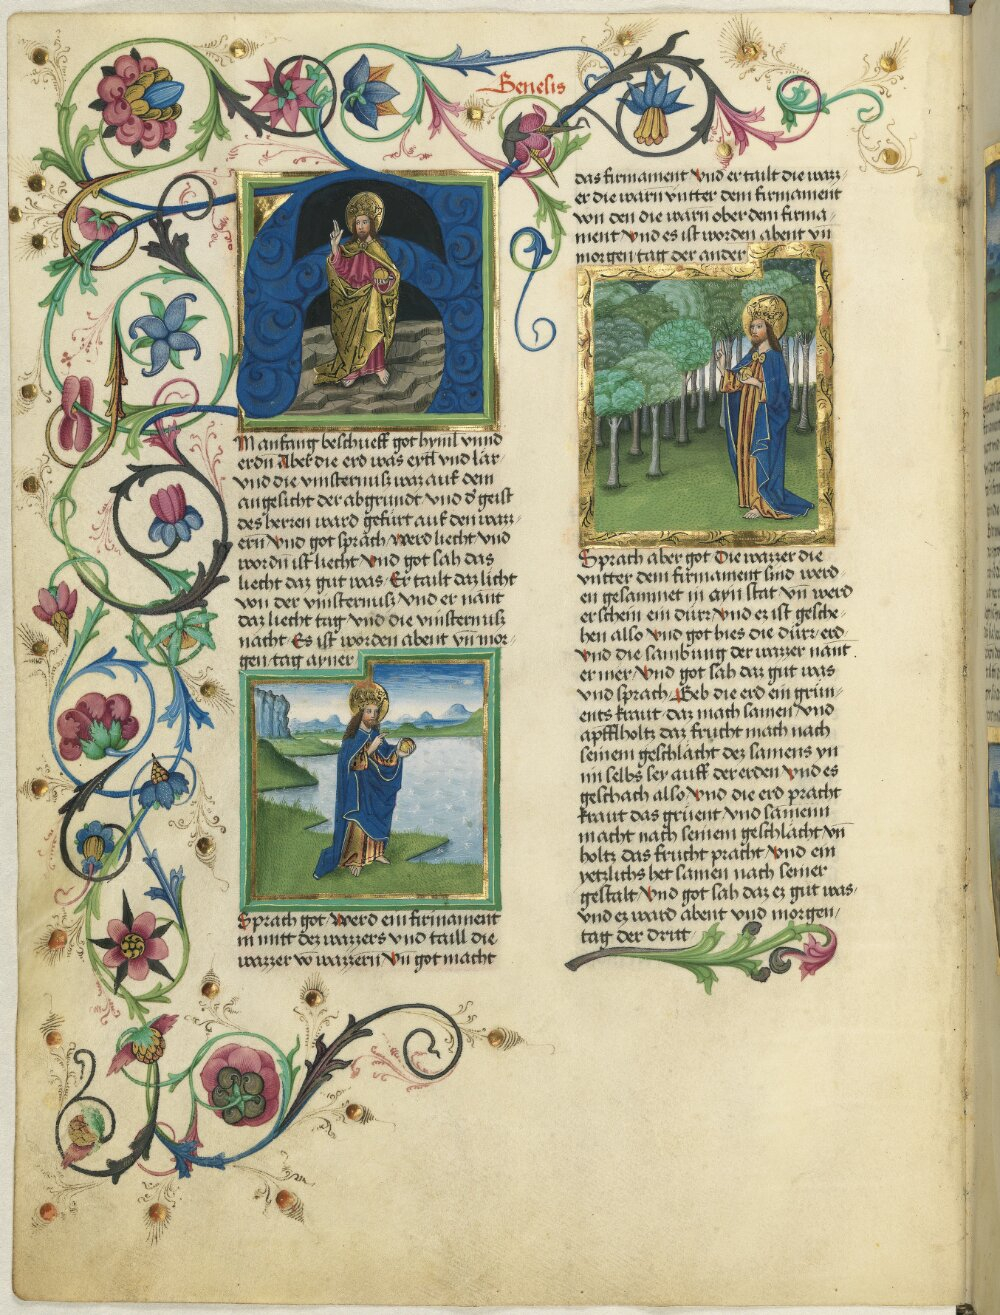 Genesis
M anfang beschueff got hymil vnnd
erdn Aber die erd was eytl vnd lär
vnd die vinsternuß war auf dem
angesicht der abgrundt vnd d' geist
des herren ward gefürt auf den warz-
ern vnd got sprach werd liecht vnd
wordn ist liecht vnd got sah das
liecht daz gut was Er tailt daz licht
von der vinsternuß vnd er nant
daz liecht tag vnd die vinsternuß
nacht Es ist worden abent vn̄ mor-
gen tag ayner
Sprach got werd ein firmament
in mitt dez wazzers vnd taill die
wazzer vō wazzern Vn̄ got macht
das firmament vnd er tailt die waz-
er die warn vntter dem firmament
von den die warn ober dem firma-
ment vnd es ist worden abent vn̄
morgen tag der ander
Sprach aber got Die wazzer die
vntter dem firmament sind werd-
en gesammet in ayn stat vn̄ werd
erschein ein dürz vnd ez ist gesche-
hen also vnd got hies die dürz erd
vnd die sambung der wazzer nant
er mer vnd got sah daz gut was
vnd sprach Geb die erd ein grün-
ents kraut daz mach samen vnd
apfflholtz daz frucht mach nach
seinem geschlächt dez samens yn
im selbs sey auff der erden vnd es
geschach also vnd die erd pracht
kraut das grüent vnd samenn
macht nach seinem geschlächt vn̄
holtz das frucht pracht vnd ein
yetzlichs het samen nach seiner
gestalt vnd got sah daz ez gut was
vnd ez ward abent vnd morgen
tag der dritt